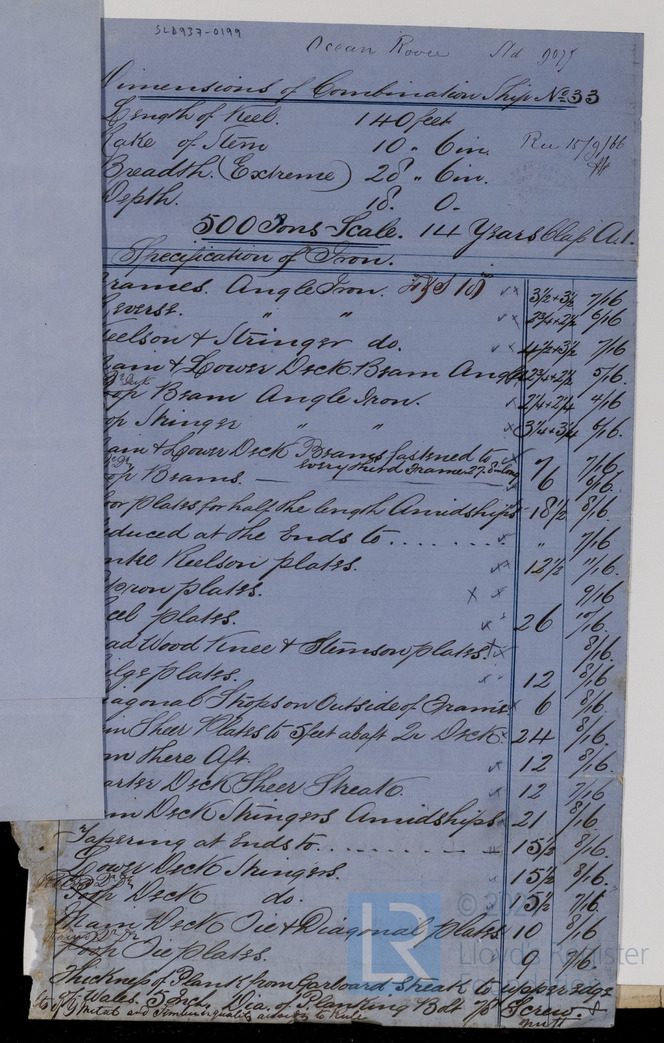 SLD937-0199
Ocean Rover
Dimensions of Combination Ship No 33
Length of Keel. 140 feet
Rake of Stem 10 " 6 in.
Breadth. (Extreme) 28 " 6 in.
Depth. 18. 0.
500 Tons Scale. 14 Years Class A.1.
Specification of Iron.
rames. Angle Iron. 18 3½+3½ 7/16
everse. " " 6/16
eelson & Stringer do. 4½+3½ 7/16
ain & Lower Deck Beam Angle 5/16
op Beam Angle Iron. 2¼+2¼ 4/16
op Stringer " " 6/16
ain & Lower Deck Beams fastened to 7 7/16
every third Frame
op Beams. 6 6/16
oor plates for half the length Amidships 18½ 8/16
educed at the Ends to " 7/16
ntre Keelson plates. 12½ 7/16
pron plates. 9/16
eel plates. 26 10/16
ad Wood Knee & Stemson plates. 8/16
ilge plates. 12 8/16
iagonal Straps on Outside of Frames 6 8/16
in Sheer Plates to 5 feet abaft Deck 24 8/16
m there Aft. 12 8/16
arter Deck Sheer Streak 12 7/16
in Deck Stringers Amidships 21 8/16
Tapering at Ends to 15½ 8/16
Lower Deck Stringers. 15½ 8/16
Poop Deck do. 15½ 7/16
Main Deck Tie & Diagonal plates 10 8/16
Poop Tie plates. 9 7/16
Thickness of Plank from Garboard Streak to upper edge
Wales. 5 Inch. Dia. of Planking Bolt Screw. &
nutt
LR
Lloyd's Register